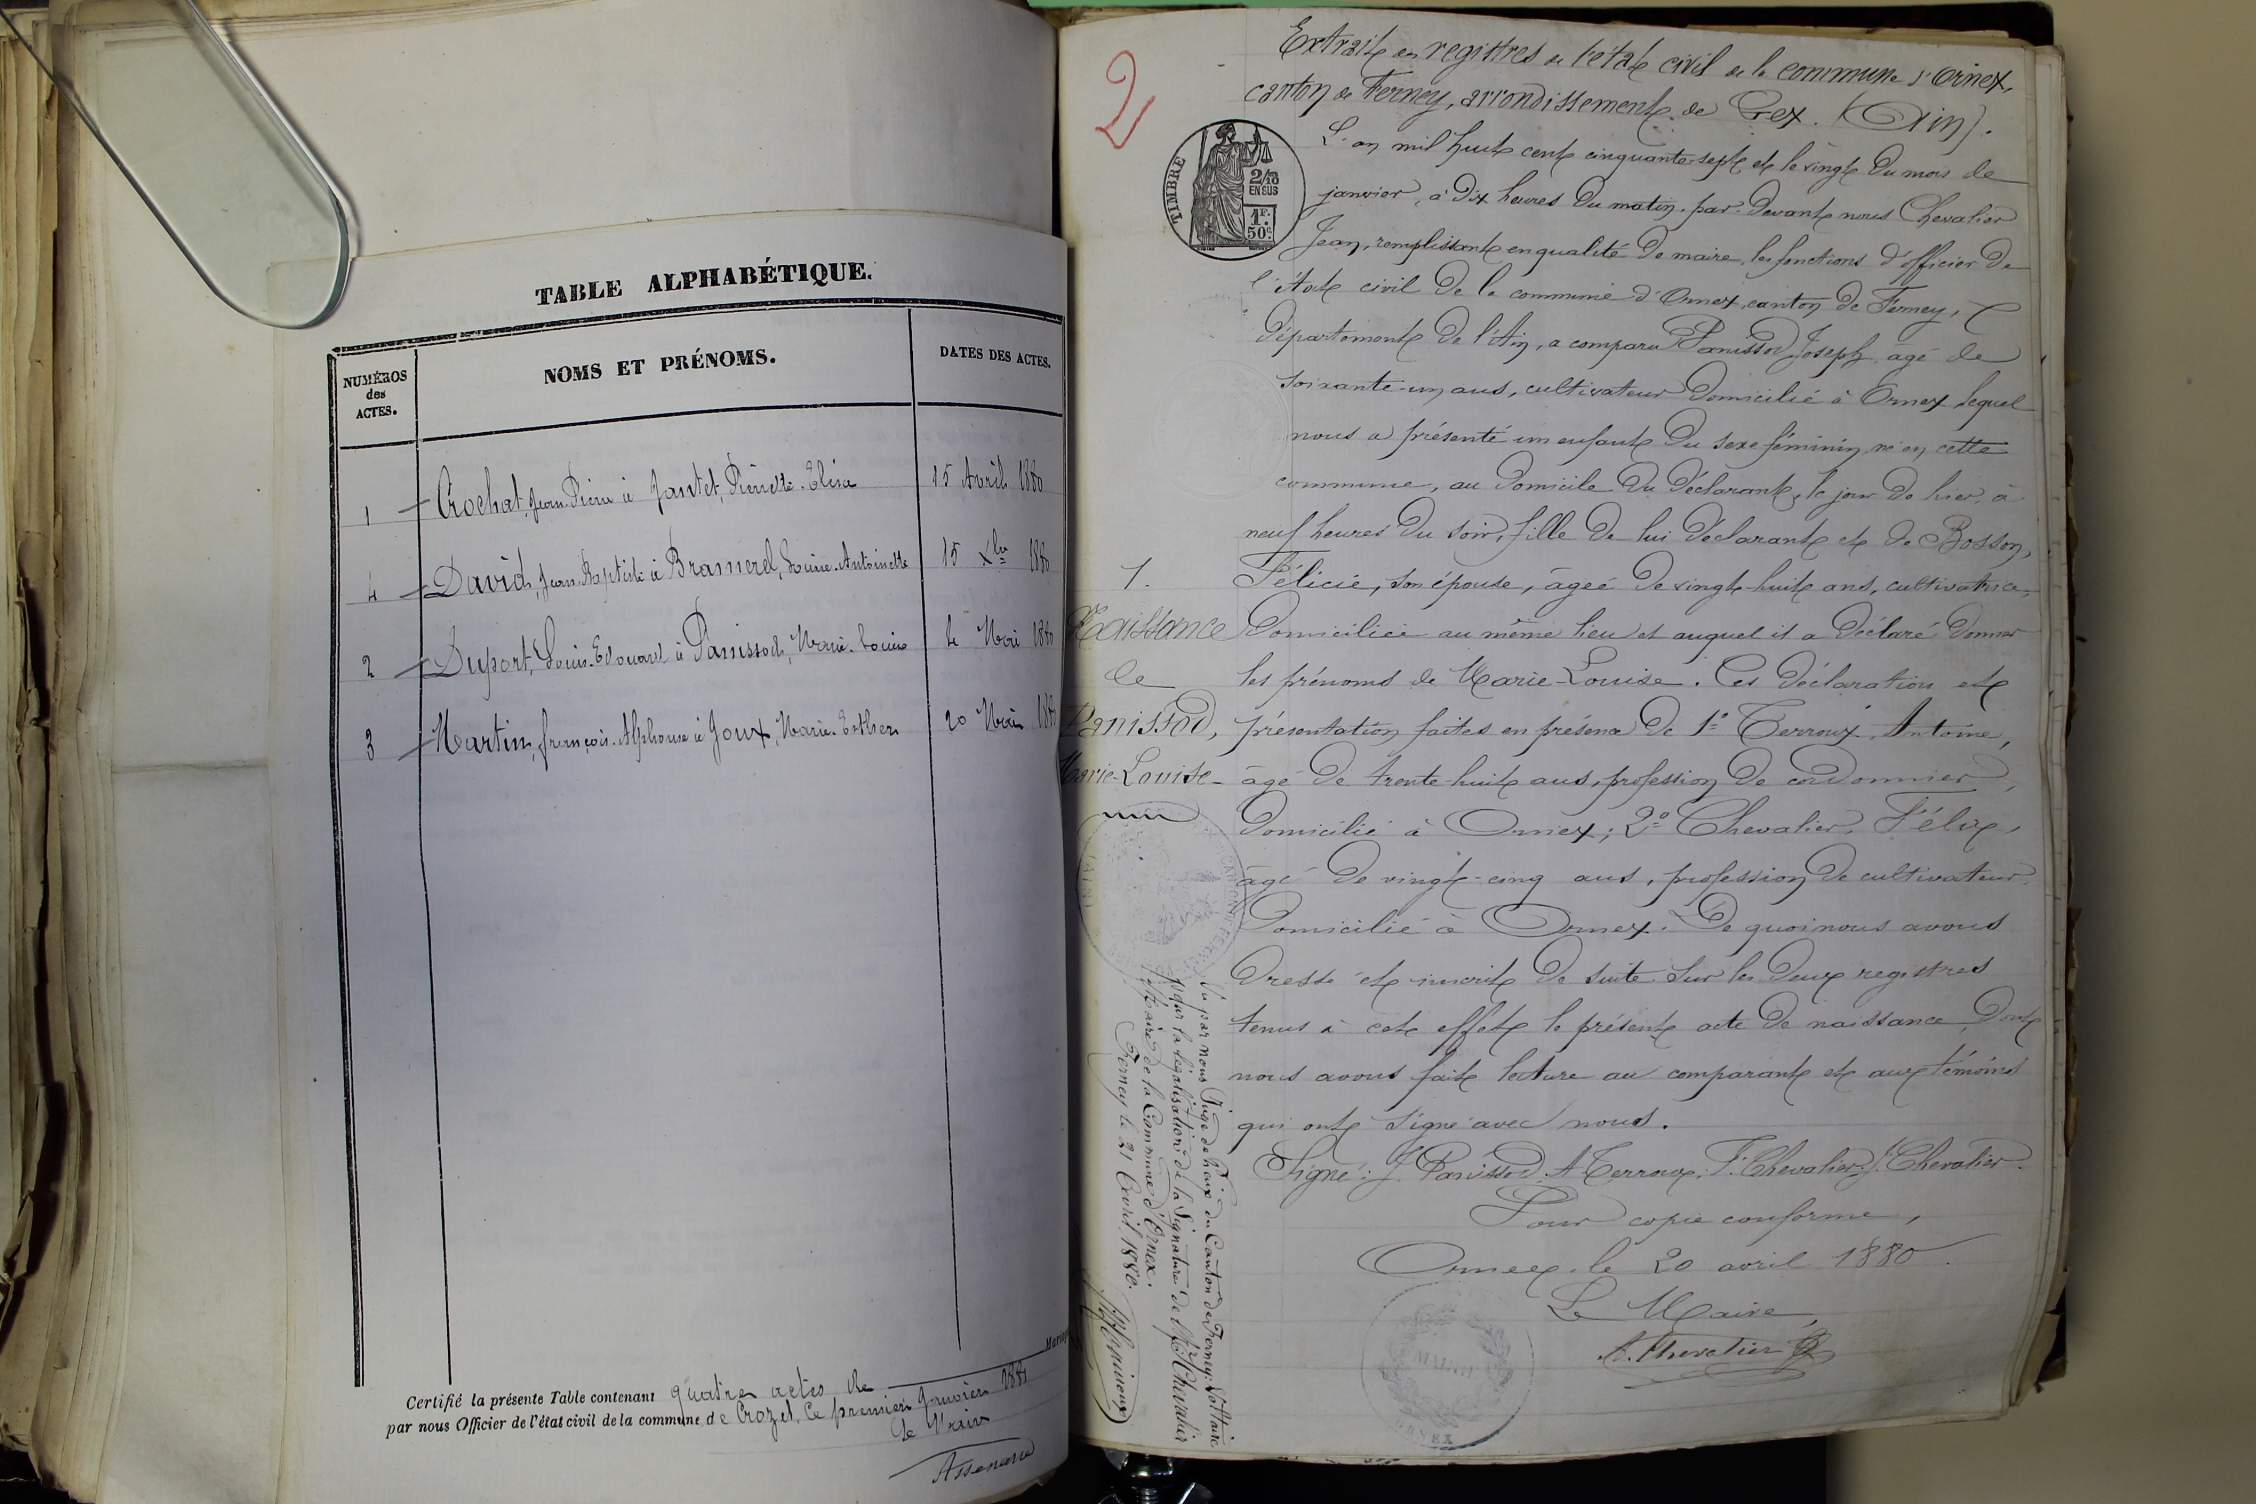 TABLE ALPHABÉTIQUE.
NUMÉROS
des
ACTES.
NOMS ET PRÉNOMS.
DATES DES ACTES.
1 Crochat, Jean Pierre à Jantet, Pierrette Elisa 15 Avril 1880
4 David, Jean Baptiste à Bramerel, Louise Antoinette 15 Xbre 1880
2 Duport, Louis Edouard à Panissod, Marie Louise 4 Mai 1880
3 Martin, françois Alphonse à Joux, Marie Esther 20 Mai 1880
Certifié la présente Table contenant quatre actes de
par nous Officier de l'état civil de la commune de Crozet, Ce premier Janvier 1881
Le Maire
2
Extrait des registres de l'état civil de la commune d'Ornex,
canton de Ferney, arrondissement de Gex. (Ain).
TIMBRE
2/10
EN SUS
1F.
50c.
L'an mil huit cent cinquante-sept et le vingt du mois de
janvier, à dix heures du matin, par devant nous Chevalier
Jean, remplissant en qualité de maire, les fonctions d'officier de
l'état civil de la commune d'Ornex, canton de Ferney,
département de l'Ain, a comparu Panissod Joseph, agé de
soixante-un ans, cultivateur domicilié à Ornex lequel
nous a présenté un enfant du sexe féminin, né en cette
commune, au domicile du déclarant, le jour de hier, à
neuf heures du soir, fille de lui déclarant et de Bosson,
Félicie, son épouse, âgée de vingt-huit ans, cultivatrice,
domiciliée au même lieu et auquel il a déclaré donner
les prénoms de Marie-Louise. Ces déclaration et
présentation faites en présence de 1° Terroux, Antoine,
âgé de trente-huit ans, profession de cordonnier,
domicilié à Ornex; 2° Chevalier, Félix,
âgé de vingt-cinq ans, profession de cultivateur
domicilié à Ornex. De quoi nous avons
dressé et inscrit de suite sur les deux registres
tenus à cet effet le présent acte de naissance, dont
nous avons fait lecture au comparant et aux témoins
qui ont signé avec nous.
Signé: J. Panissod, A. Terroux, F. Chevalier, J. Chevalier.
Pour copie conforme,
Ornex, le 20 avril 1880.
Le Maire,
A. Chevalier
MAIRIE
ORNEX
1.
Naissance
de
Panissod,
Marie-Louise
Vu par nous Juge de Paix du Canton de Ferney-Voltaire
pour la légalisation de la Signature de Mr Chevalier
Maire de la Commune d'Ornex.
Ferney le 21 Avril 1880.